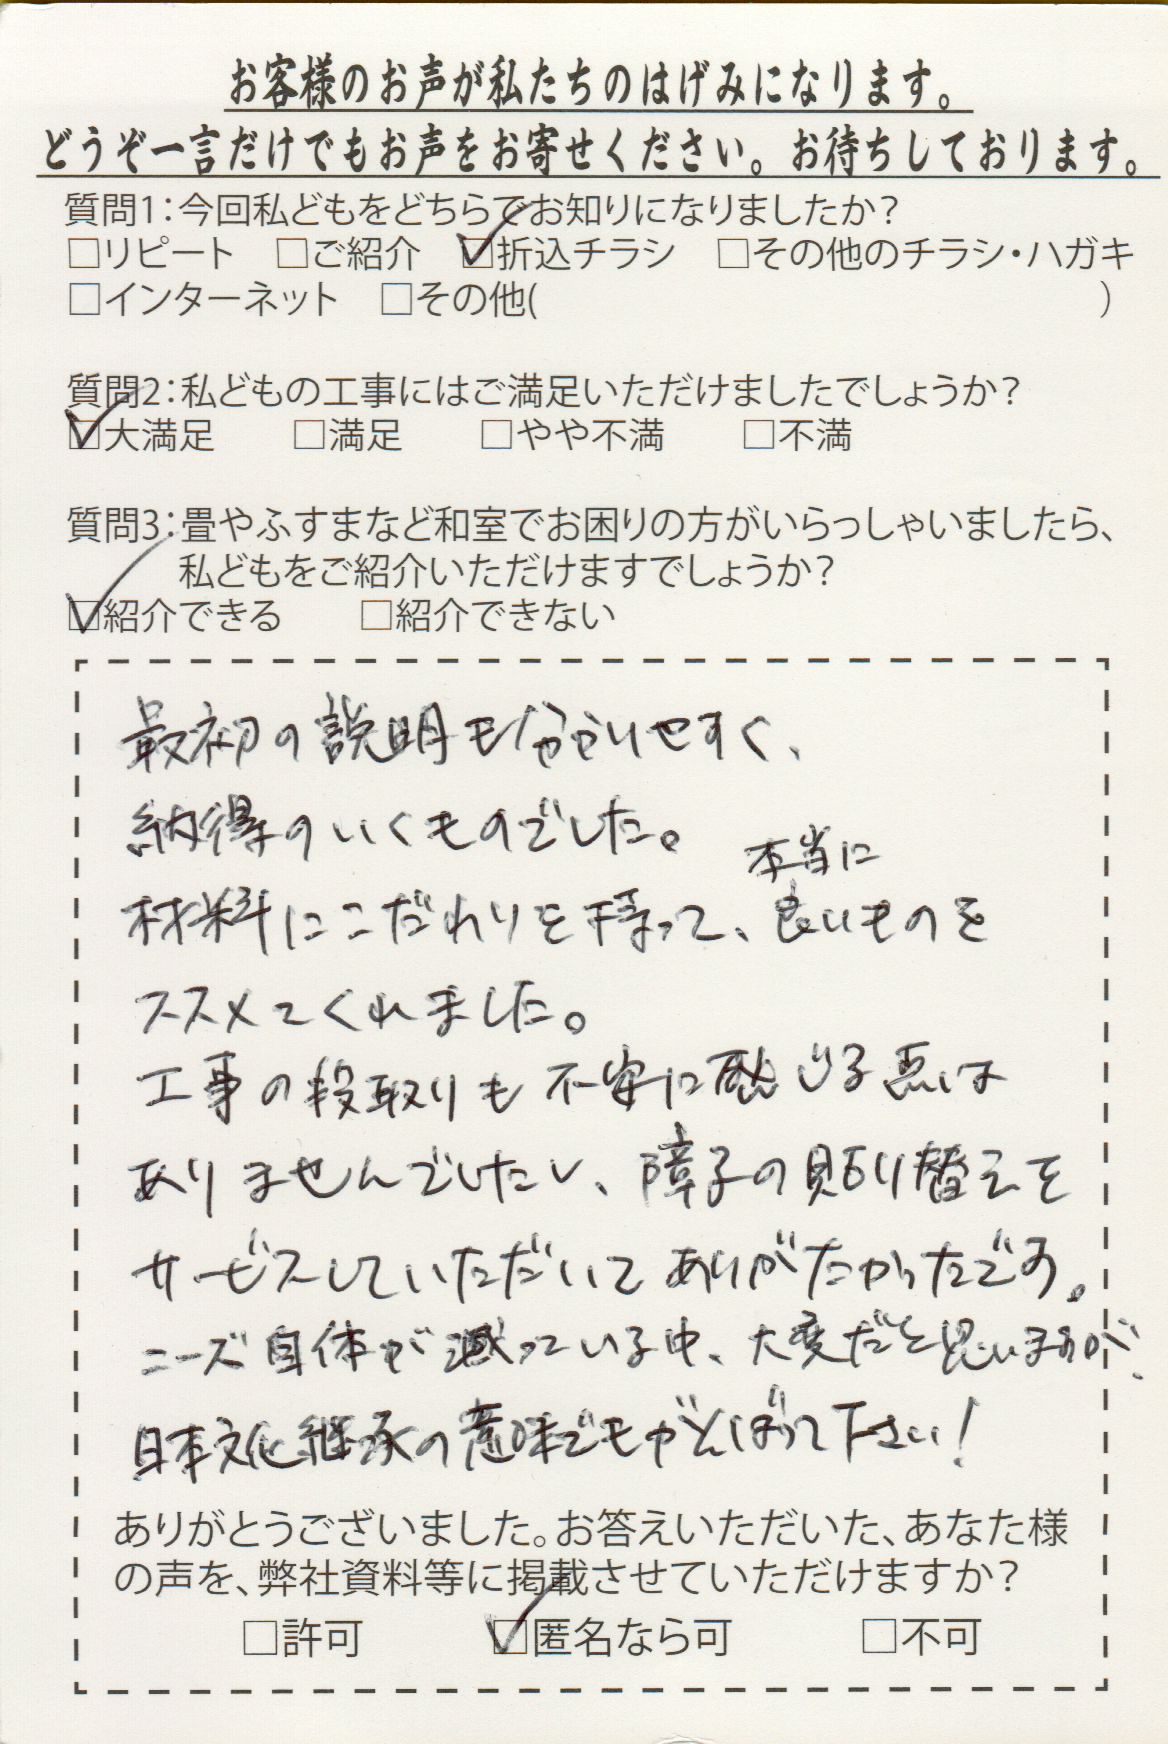 お客様のお声が私たちのはげみになります。
どうぞ一言だけでもお声をお寄せください。お待ちしております。
質問1：今回私どもをどちらでお知りになりましたか？
□リピート □ご紹介 ☑折込チラシ □その他のチラシ・ハガキ
□インターネット □その他( )
質問2：私どもの工事にはご満足いただけましたでしょうか？
☑大満足 □満足 □やや不満 □不満
質問3：畳やふすまなど和室でお困りの方がいらっしゃいましたら、
私どもをご紹介いただけますでしょうか？
☑紹介できる □紹介できない
最初の説明も分かりやすく、
納得のいくものでした。
本当に
材料にこだわりを持って、良いものを
ススメてくれました。
工事の段取りも不安に感じる点は
ありませんでしたし、障子の貼り替えを
サービスしていただいてありがたかったです。
ニーズ自体が減っている中、大変だと思いますが、
日本文化継承の意味でもがんばって下さい!
ありがとうございました。お答えいただいた、あなた様
の声を、弊社資料等に掲載させていただけますか？
□許可 ☑匿名なら可 □不可